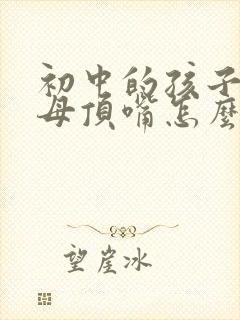 初中的孩子
母頂嘴怎麼
望崖冰